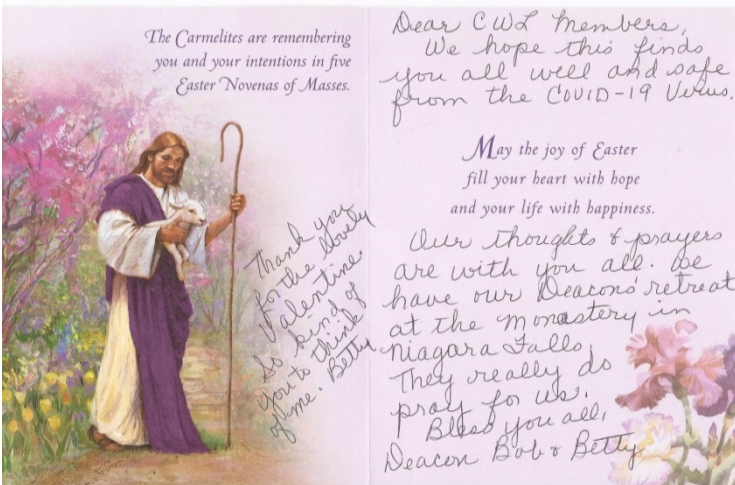 The Carmelites are remembering
you and your intentions in five
Easter Novenas of Masses.
Thank you
for the lovely
Valentine.
So kind of
you to think
of me. Betty
Dear CWL Members,
We hope this finds
you all well and safe
from the COVID-19 Virus.
May the joy of Easter
fill your heart with hope
and your life with happiness.
Our thoughts & prayers
are with you all. We
have our Deacons' retreat
at the monastery in
Niagara Falls.
They really do
pray for us.
Bless you all,
Deacon Bob & Betty